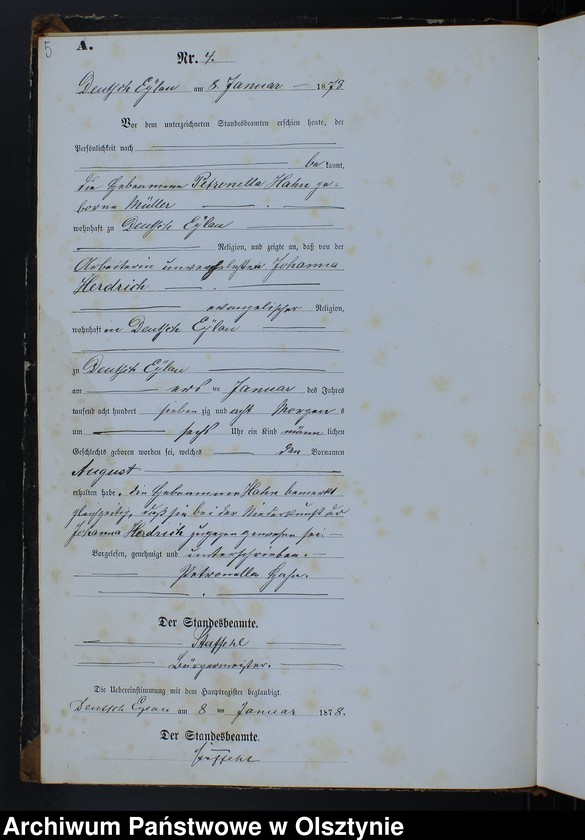 5
A.
Nr. 4.
Deutsch Eylau am 8. Januar 1878
Vor dem unterzeichneten Standesbeamten erschien heute, der
Persönlichkeit nach
be kannt,
die Hebeamme Petronella Hahn ge-
borne Müller
wohnhaft zu Deutsch Eylau
Religion, und zeigte an, daß von der
Arbeiterin unverehelichten Johanna
Herdrich
evangelischer Religion,
wohnhaft in Deutsch Eylau
zu Deutsch Eylau
am ten Januar des Jahres
tausend acht hundert sieben zig und acht Morgens
um sechs Uhr ein Kind männ lichen
Geschlechts geboren worden sei, welches den Vornamen
August
erhalten habe. die Hebeamme Hahn bemerkt
gleichzeitig, daß sie bei der Niederkunft der
Johanna Herdrich zugegen gewesen sei.
Vorgelesen, genehmigt und unterschrieben.
Petronella Hahn.
Der Standesbeamte.
Bürgermeister.
Die Uebereinstimmung mit dem Hauptregister beglaubigt.
Deutsch Eylau am 8 ten Januar 1878.
Der Standesbeamte.
Archiwum Państwowe w Olsztynie